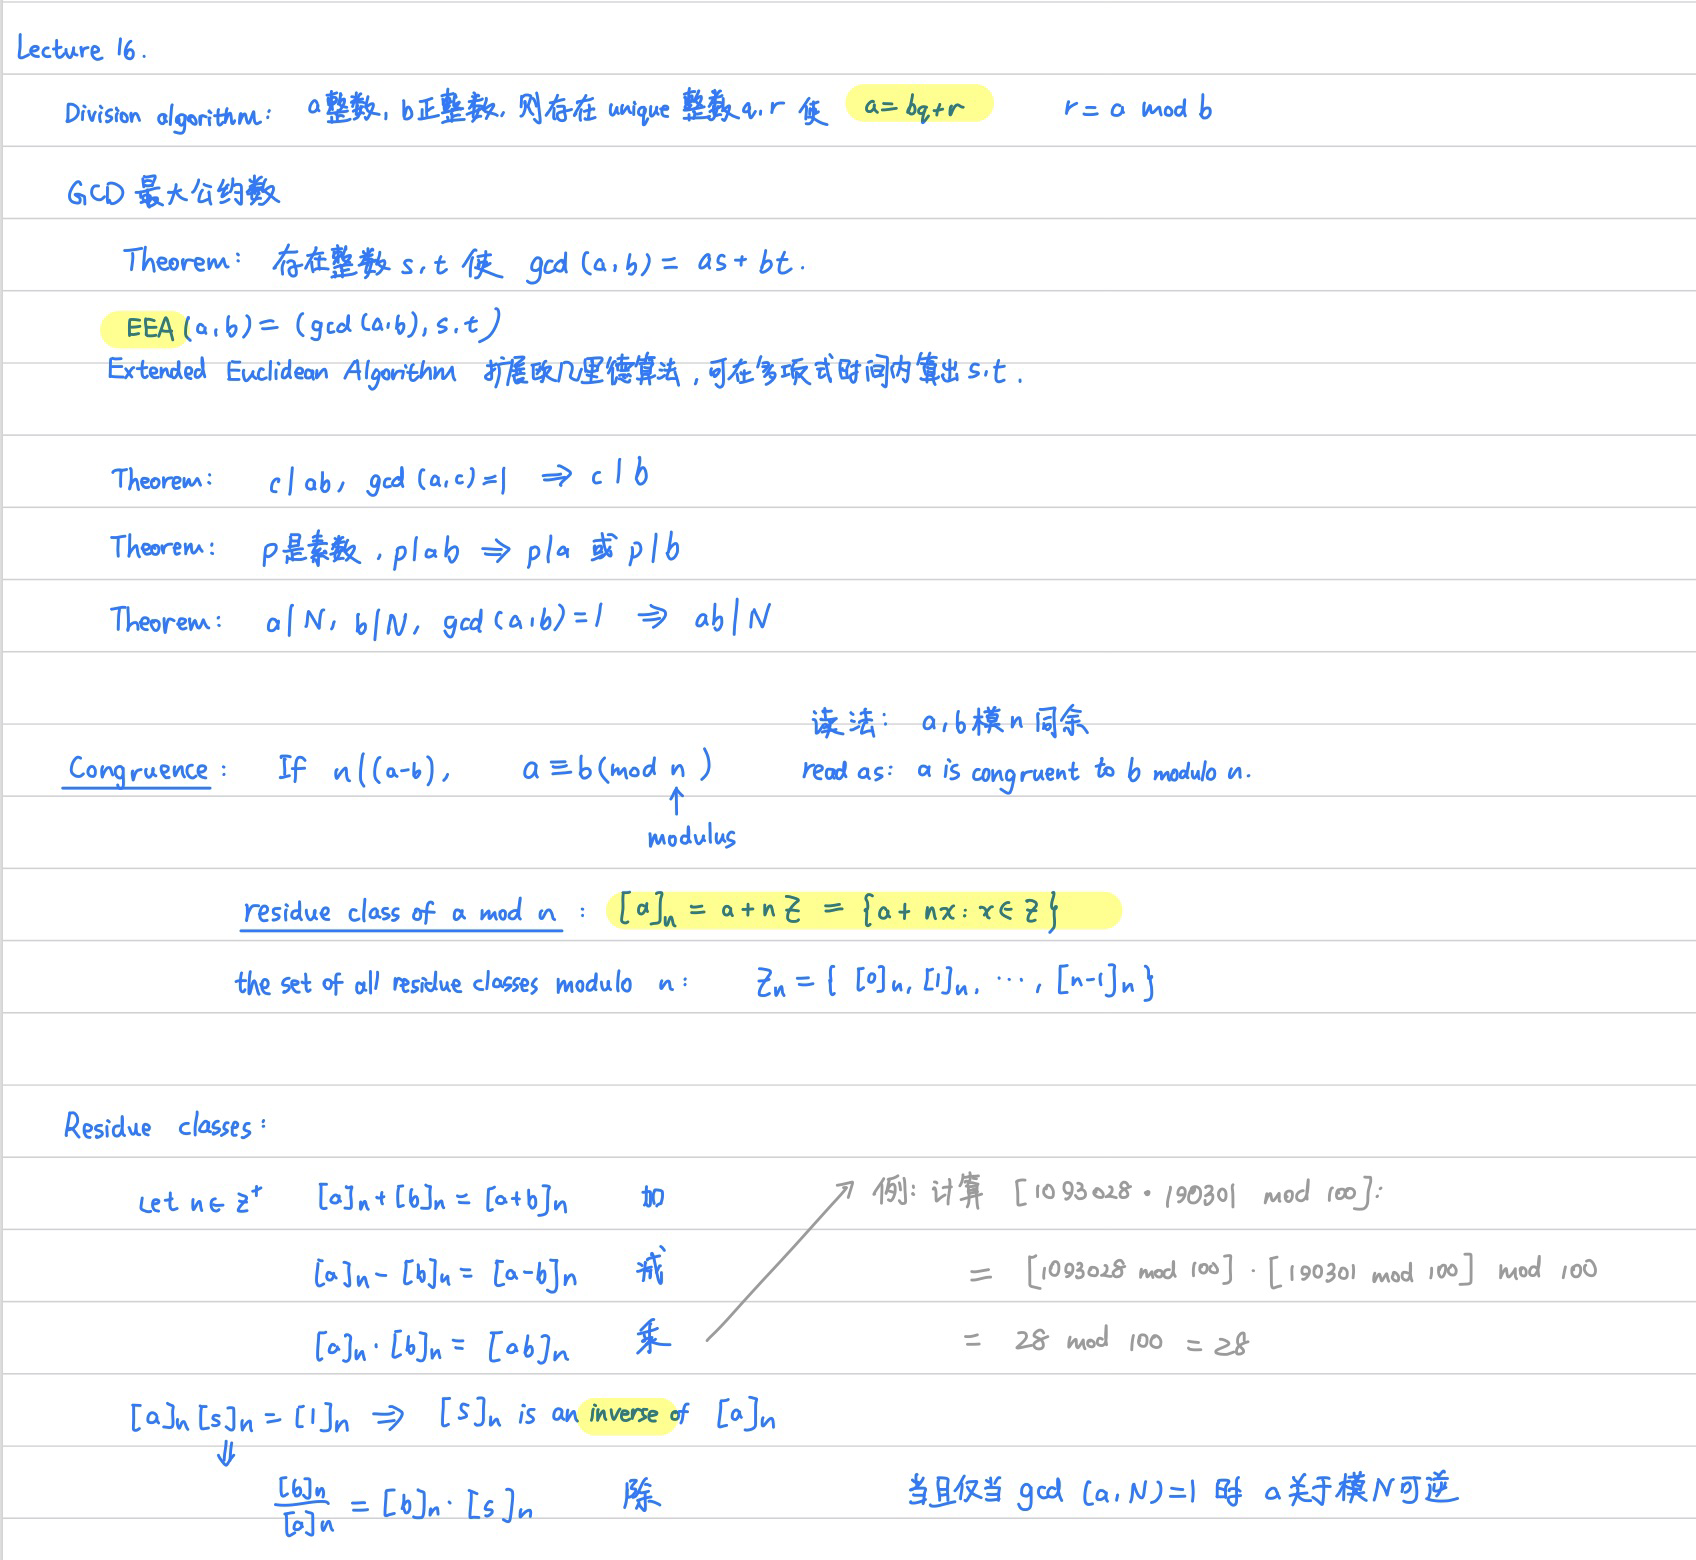 Lecture 16.
Division algorithm: a整数, b正整数, 则存在 unique 整数q, r 使 a = bq+r r = a mod b
GCD 最大公约数
Theorem: 存在整数 s, t 使 gcd (a, b) = as + bt.
EEA (a, b) = (gcd (a, b), s, t)
Extended Euclidean Algorithm 扩展欧几里德算法, 可在多项式时间内算出 s, t.
Theorem: c | ab, gcd (a, c) = 1 ⇒ c | b
Theorem: p是素数, p | ab ⇒ p | a 或 p | b
Theorem: a | N, b | N, gcd (a, b) = 1 ⇒ ab | N
读法: a, b 模 n 同余
Congruence: If n | (a-b), a ≡ b (mod n) read as: a is congruent to b modulo n.
↑
modulus
residue class of a mod n : [a]ₙ = a + n Z = {a + nx : x ∈ Z}
the set of all residue classes modulo n: Zₙ = { [0]ₙ, [1]ₙ, ⋯, [n-1]ₙ }
Residue classes:
Let n ∈ Z⁺ [a]ₙ + [b]ₙ = [a+b]ₙ 加 例: 计算 [1093028 · 190301 mod 100]:
[a]ₙ - [b]ₙ = [a-b]ₙ 减 = [1093028 mod 100] · [190301 mod 100] mod 100
[a]ₙ · [b]ₙ = [ab]ₙ 乘 = 28 mod 100 = 28
[a]ₙ [s]ₙ = [1]ₙ ⇒ [s]ₙ is an inverse of [a]ₙ
⇓
[b]ₙ/[a]ₙ = [b]ₙ · [s]ₙ 除 当且仅当 gcd (a, N) = 1 时 a 关于模 N 可逆